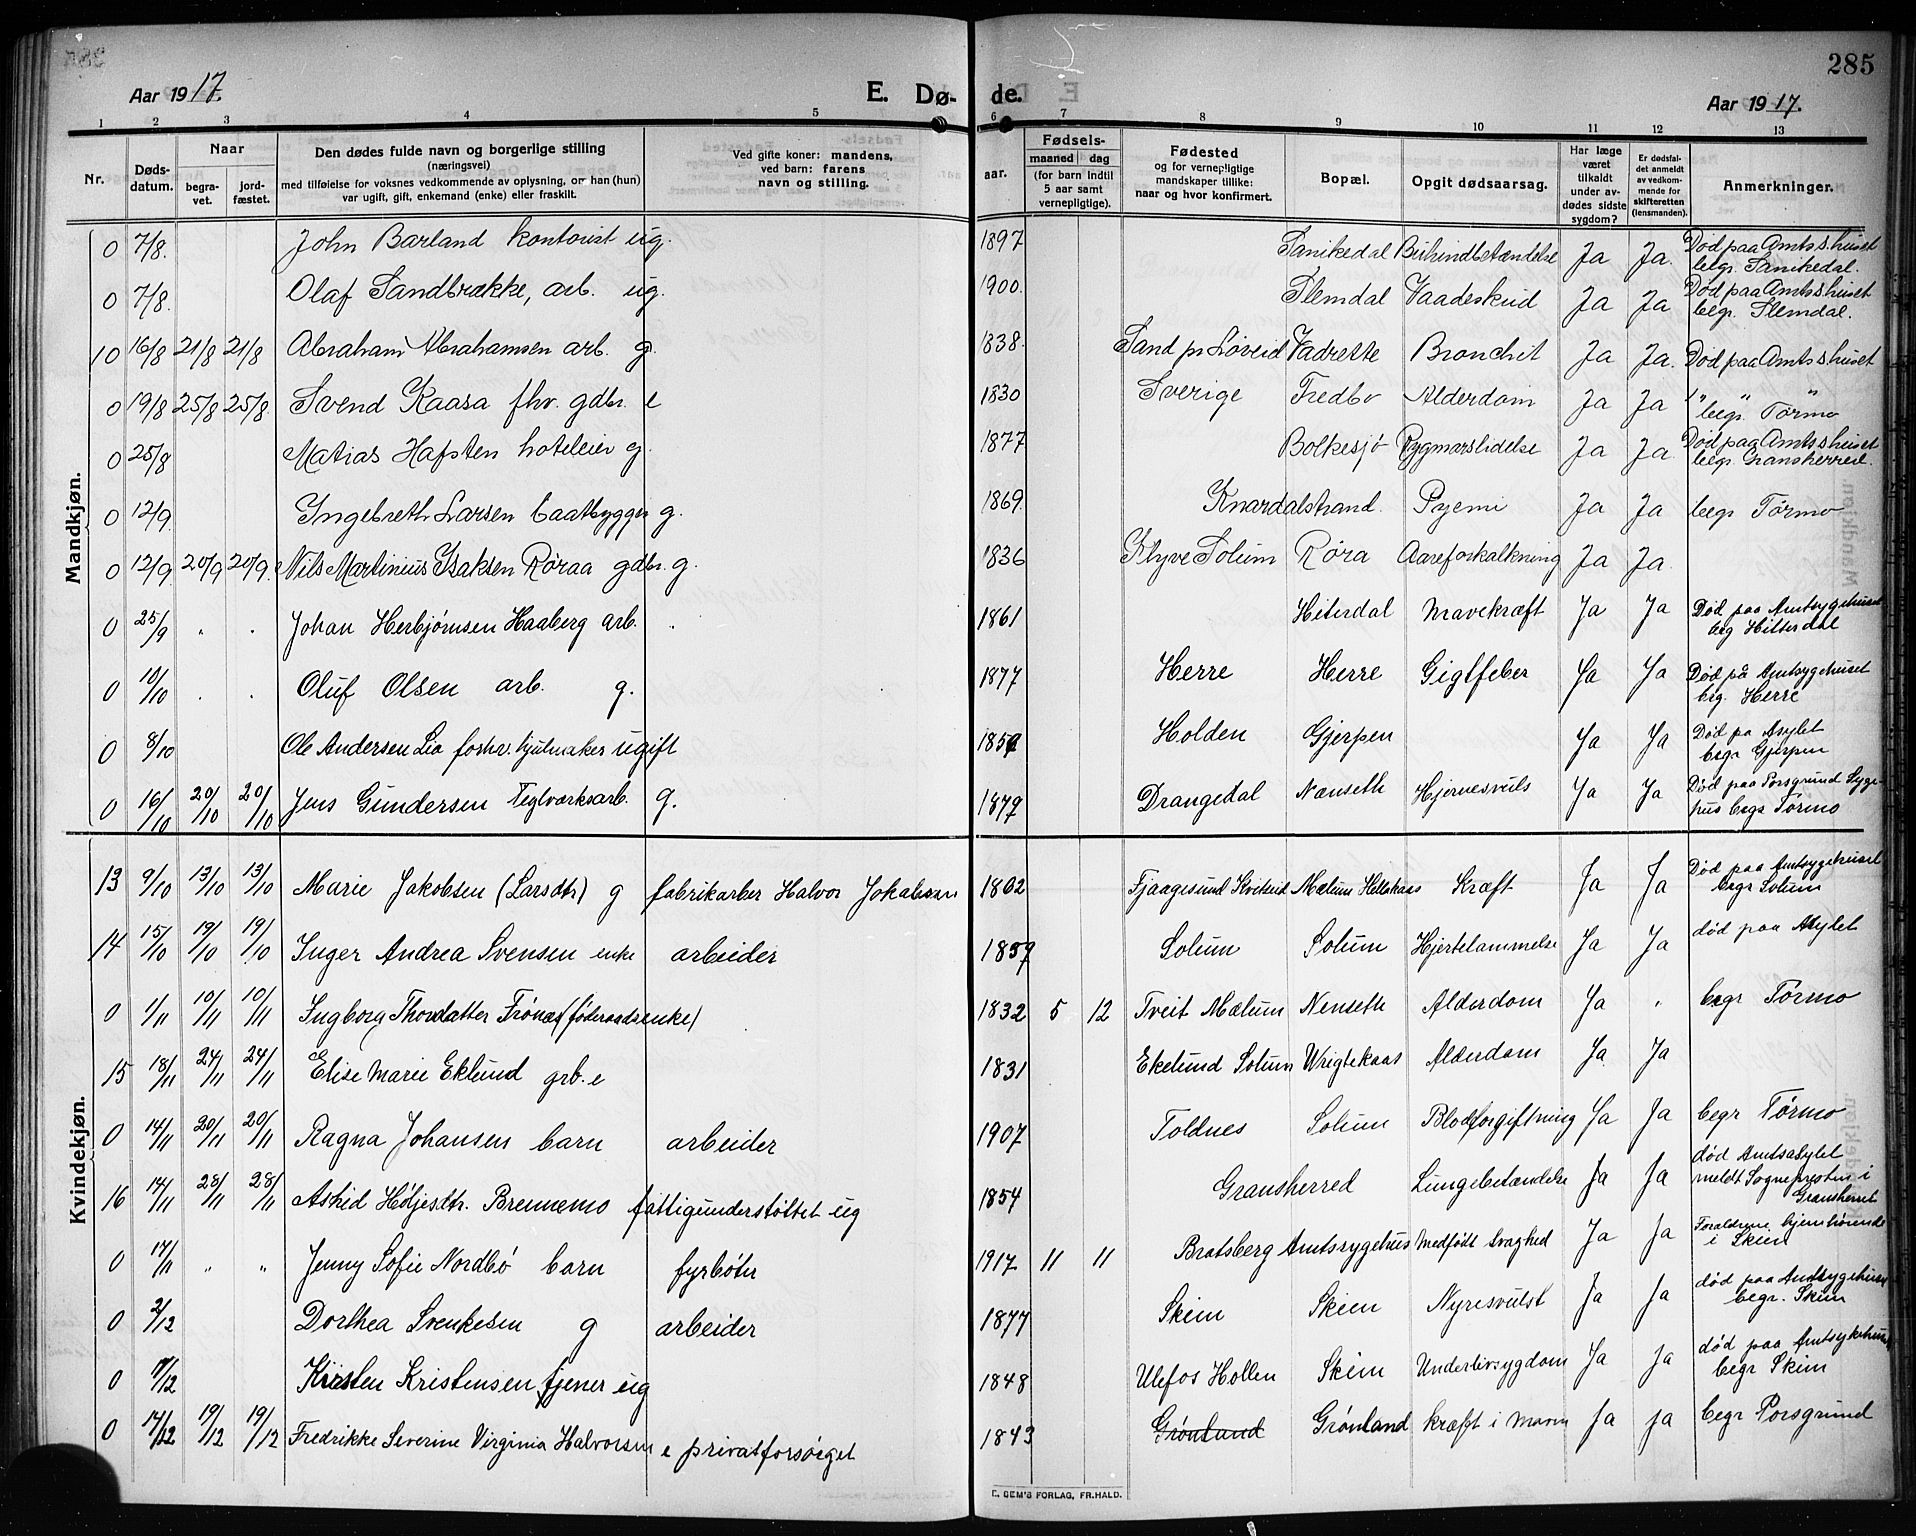 285
Aar 1917. E. Dø- de. Aar 1917.
1 2 3 4 5 6 7 8 9 10 11 12 13
Nr. Døds-datum. Naar begra-vet. jord-fæstet. Den dødes fulde navn og borgerlige stilling (næringsvei) med tilføielse for voksnes vedkommende av oplysning, om han (hun) var ugift, gift, enkemand (enke) eller fraskilt. Ved gifte koner: mandens, ved barn: farens navn og stilling. aar. Fødsels- maaned dag (for barn indtil 5 aar samt vernepligtige). Fødested og for vernepligtige mandskaper tillike: naar og hvor konfirmert. Bopæl. Opgit dødsaarsag. Har læge været tilkaldt under av-dødes sidste sygdom? Er dødsfal-det anmeldt av vedkom-mende for skifteretten (lensmanden). Anmerkninger.
Mandkjøn.
0 7/8. John Barland kontorist ug. 1897 Sanikedal Ja Ja. Død paa Amtsshuset begr. Sanikedal.
0 7/8. Olaf Sandbrække, arb. ug. 1900. Slemdal Vaadeskud Ja Ja Død paa Amtsshuset begr. Slemdal.
10 16/8 21/8 21/8 Abraham Abrahamsen arb. g. 1838. Sand pr Løveid Vadrette Bronchit Ja Ja. Død paa Amtsshuset
0 19/8 25/8 25/8. Svend Kaasa fhv. gdbr. e 1830 Sverige Fredbo Alderdom Ja Ja " " " begr. Tørmo
0 25/8 Matias Hafsten hoteleier g. 1877 Bolkesjø Rygmarslidelse Ja Ja. Død paa Amtsshuset begr. Granskerred.
0 12/9. Ingebreth Larsen baatbygger g. 1869. Knardalstrand. Pyemi Ja Ja begr Tørmo
0 12/9 20/9 20/9. Nils Martinius Isaksen Røraa gdbr. g. 1836 Klyve Solum Røra Aareforkalkning Ja Ja.
0 25/9 " . Johan Herbjørnsen Haaberg arb. . 1861 Hiterdal Mavekræft Ja Ja Død paa Amtsygehuset beg Hitterdal
0 10/10 . . Oluf Olsen arb. g. 1877 Herre Herre Gigtfeber Ja Ja Død på Amtsygehuset beg. Herre
0 8/10 Ole Andersen Lia forhv. hjulmaker ugift Holden Gjerpen Ja Ja Død pa Asylet begr Gjerpen
0 16/10 20/10 20/10 Jens Gundersen Teglværksarb. g. 1879 Drangedal Nænseth Hjernesvuls Ja Ja Død paa Porsgrund Syge-hus begr Tørmo
Kvindekjøn.
13 9/10 13/10 13/10 Marie Jakobsen (Larsdtr) g fabrikarber Halvor Jokabsen 1862 Fjaagesund Kviteid Mælum Hellekaas Kræft Ja Ja Død paa Amtsygehuset begr Solum
14 15/10 19/10 19/10 Inger Andrea Svensen enke arbeider 1859 Solum Solum Hjertelammelse Ja Ja død paa Asylet
0 1/11 10/11 10/11 Ingborg Thordatter Frønes (føderaadsenke) 1832 5 12 Tveit Mælum Nenseth Alderdom Ja " begr Tørmo
15 18/11 24/11 24/11 Elise Marie Eklund grb. e 1831 Ekelund Solum Wrigtekaas Alderdom Ja Ja
0 14/11 20/11 20/11 Ragna Johansen barn arbeider 1907 Toldnes Solum Blodforgiftning Ja Ja begr Tørmo
16 14/11 28/11 28/11 Askid Høljesdtr. Brennemo fattigunderstøttet ug 1854 Gransherred Lungebetændelse Ja Ja død Amtsasylet meldt Sogneprsten i Gransherret
0 17/11 " " Jenny Sofie Nordbø barn fyrbøter 1917 11 11 Bratsberg Amtssygehus Medfødt svaghed Ja Ja Foraldrene hjemhørende i Skien
0 2/12 Dorthea Svenkesen g arbeider 1877 Skien Skien Nyresvulst Ja Ja død paa Amtsygehuset begr. Skien
0 /12 Kirsten Kristensen tjener ug 1848 Ulefos Hollen Skien Underlivsygdom Ja Ja død paa Amtsykehuset begr Skien
0 17/12 19/12 19/12 Fredrikke Severine Virginia Halvorsen e privatforsørget 1843 Grønlund Grønland kræft i maven Ja Ja begr Porsgrund
E. SEM'S FORLAG, FR.HALD.